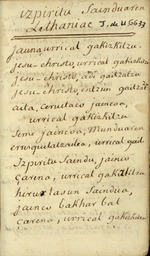 izpiritu Sainduaren
Lethaniac
jauna, urrical gakizkitzu.
jesu-christo, urrical gakizkitzu
jesu-christo, adi gaitzatzu
jesu-christo, entzun gaitzatzu
aita, Ceruetaco jaincoa,
urrical gakizkitzu.
Seme jaincoa, Munduaren
errospitatzailea, urrical gaki
Izpiritu Saindu, jainco
çarena, urrical gakizkitzu
hirur tasun Saindua,
jainco bakhar bat
çarena, urrical gakizkitzu